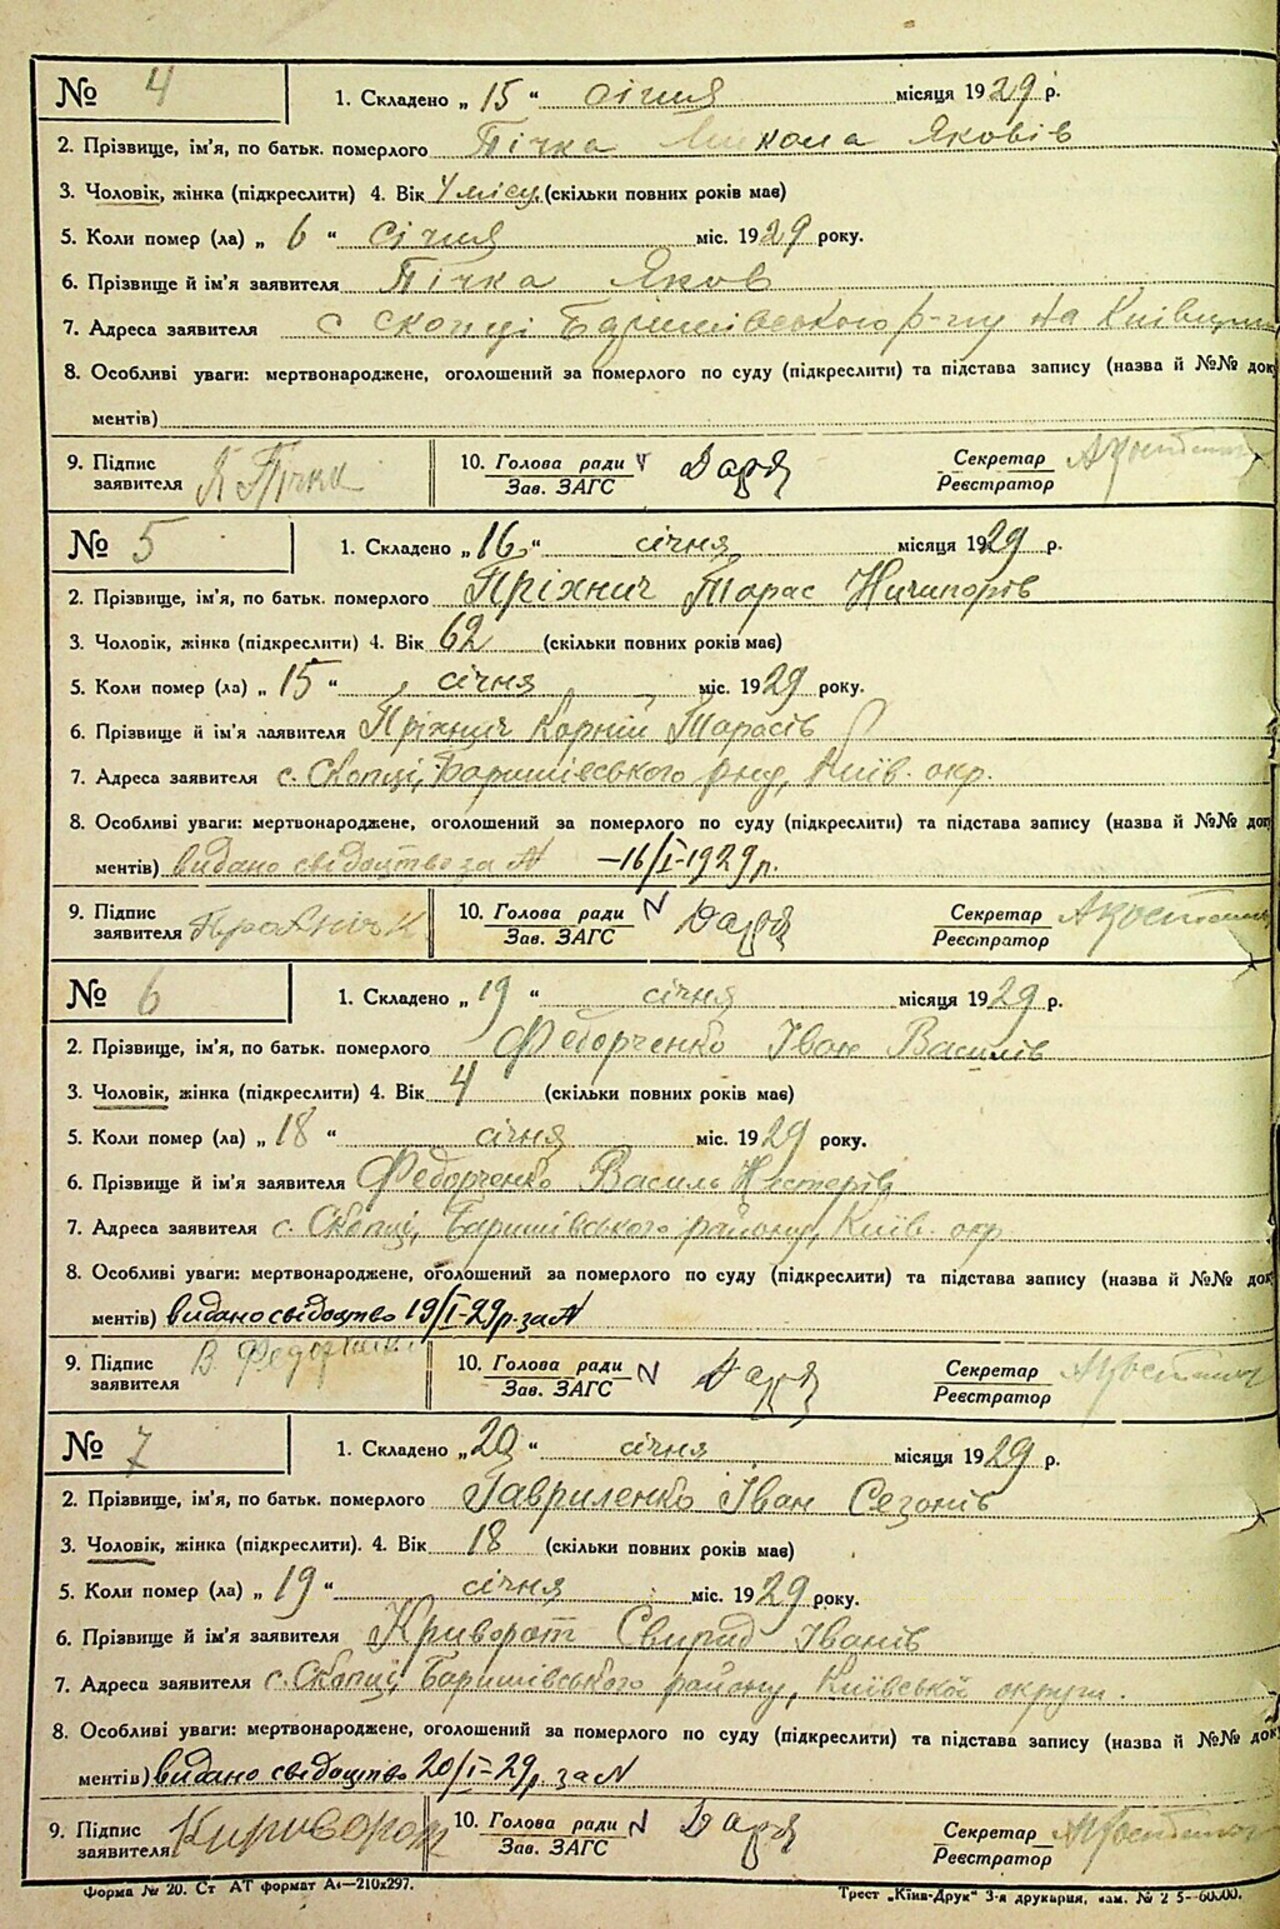 № 4 1. Складено „ 15 “ січня місяця 1929 р.
2. Прізвище, ім'я, по батьк. померлого Пічка Микола Яковів
3. Чоловік, жінка (підкреслити) 4. Вік 4 місц. (скільки повних років має)
5. Коли помер (ла) „ 6 “ січня міс. 1929 року.
6. Прізвище й ім'я заявителя Пічка Яков
7. Адреса заявителя с Скопці Баришівського р-ну на Київщині
8. Особливі уваги: мертвонароджене, оголошений за померлого по суду (підкреслити) та підстава запису (назва й №№ доку
ментів)
9. Підпис заявителя Я Пічка 10. Голова ради Зав. ЗАГС Секретар Реєстратор
№ 5 1. Складено „ 16 “ січня місяця 1929 р.
2. Прізвище, ім'я, по батьк. померлого Пріхнич Тарас Ничипорів
3. Чоловік, жінка (підкреслити) 4. Вік 62 (скільки повних років має)
5. Коли помер (ла) „ 15 “ січня міс. 1929 року.
6. Прізвище й ім'я заявителя Пріхнич Корній Тарасів
7. Адреса заявителя с. Скопці, Баришівського р-ну, Київ. окр.
8. Особливі уваги: мертвонароджене, оголошений за померлого по суду (підкреслити) та підстава запису (назва й №№ доку
ментів) видано свідоцтво за № —16/I-1929 р.
9. Підпис заявителя 10. Голова ради Зав. ЗАГС Секретар Реєстратор
№ 6 1. Складено „ 19 “ січня місяця 1929 р.
2. Прізвище, ім'я, по батьк. померлого Федорченко Іван Василів
3. Чоловік, жінка (підкреслити) 4. Вік 4 (скільки повних років має)
5. Коли помер (ла) „ 18 “ січня міс. 1929 року.
6. Прізвище й ім'я заявителя Федорченко Василь Нестерів
7. Адреса заявителя с. Скопці, Баришівського району, Київ. окр
8. Особливі уваги: мертвонароджене, оголошений за померлого по суду (підкреслити) та підстава запису (назва й №№ доку
ментів) видано свідоцтво 19/I-29 р. за №
9. Підпис заявителя В. 10. Голова ради Зав. ЗАГС Секретар Реєстратор
№ 7 1. Складено „ 20 “ січня місяця 1929 р.
2. Прізвище, ім'я, по батьк. померлого Гавриленко Іван Сезонів
3. Чоловік, жінка (підкреслити). 4. Вік 18 (скільки повних років має)
5. Коли помер (ла) „ 19 “ січня міс. 1929 року.
6. Прізвище й ім'я заявителя Криворот Свирид Іванів
7. Адреса заявителя с. Скопці Баришівського району, Київської округи.
8. Особливі уваги: мертвонароджене, оголошений за померлого по суду (підкреслити) та підстава запису (назва й №№ доку
ментів) видано свідоцтво 20/I-29 р. за №
9. Підпис заявителя Кириворот 10. Голова ради Зав. ЗАГС Секретар Реєстратор
Форма № 20. Ст АТ формат А4—210х297. Трест „Київ-Друк“ 3-я друкарня, зам. № 2 5—60000.